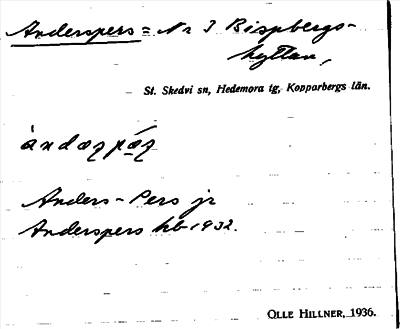 Anderspers = Nr 3 Bispbergs-
hyttan,
St. Skedvi sn, Hedemora tg, Kopparbergs län.
Anders-Pers jr
Anderspers hb 1932.
OLLE HILLNER, 1936.